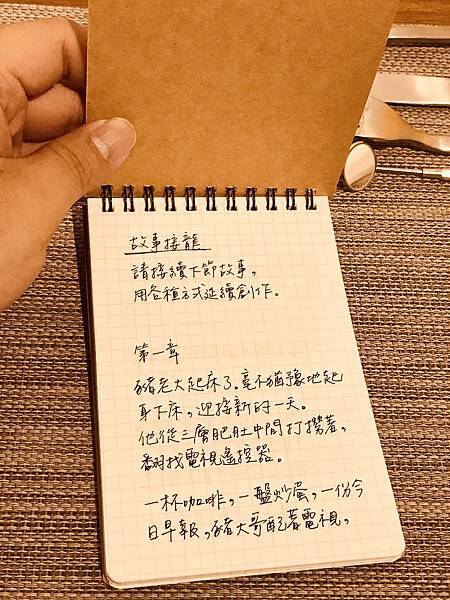 故事接龍
請接續下節故事，
用各種方式延續創作。
第一章
豬老大起床了，毫不猶豫地起
身下床，迎接新的一天。
他從三層肥肚中間打撈著，
翻找電視遙控器。
一杯咖啡，一盤炒蛋，一份今
日早報，豬大哥配著電視，